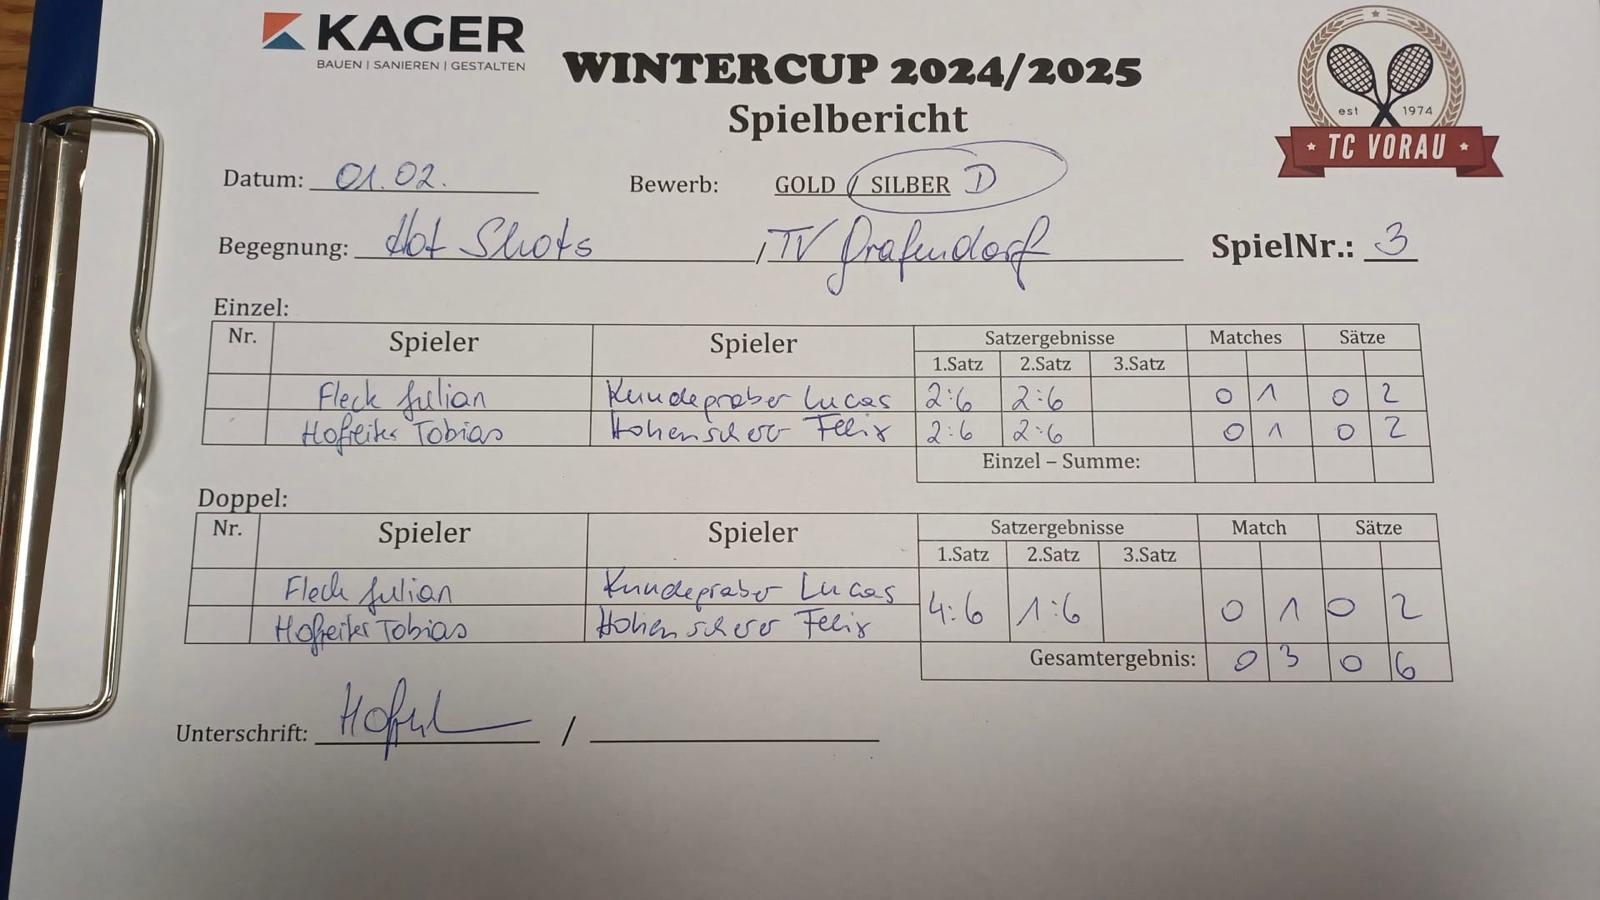 KAGER
BAUEN | SANIEREN | GESTALTEN
WINTERCUP 2024/2025
Spielbericht
est 1974
TC VORAU
Datum: 01.02. Bewerb: GOLD / SILBER D
Begegnung: Hot Shots / TV Grafendorf SpielNr.: 3
Einzel:
Nr. Spieler Spieler Satzergebnisse Matches Sätze
1.Satz 2.Satz 3.Satz
Fleck Julian Kundegraber Lucas 2:6 2:6 0 1 0 2
Hofreiter Tobias Hohenscherer Felix 2:6 2:6 0 1 0 2
Einzel – Summe:
Doppel:
Nr. Spieler Spieler Satzergebnisse Match Sätze
1.Satz 2.Satz 3.Satz
Fleck Julian Kundegraber Lucas
4:6 1:6 0 1 0 2
Hofreiter Tobias Hohenscherer Felix
Gesamtergebnis: 0 3 0 6
Unterschrift: /